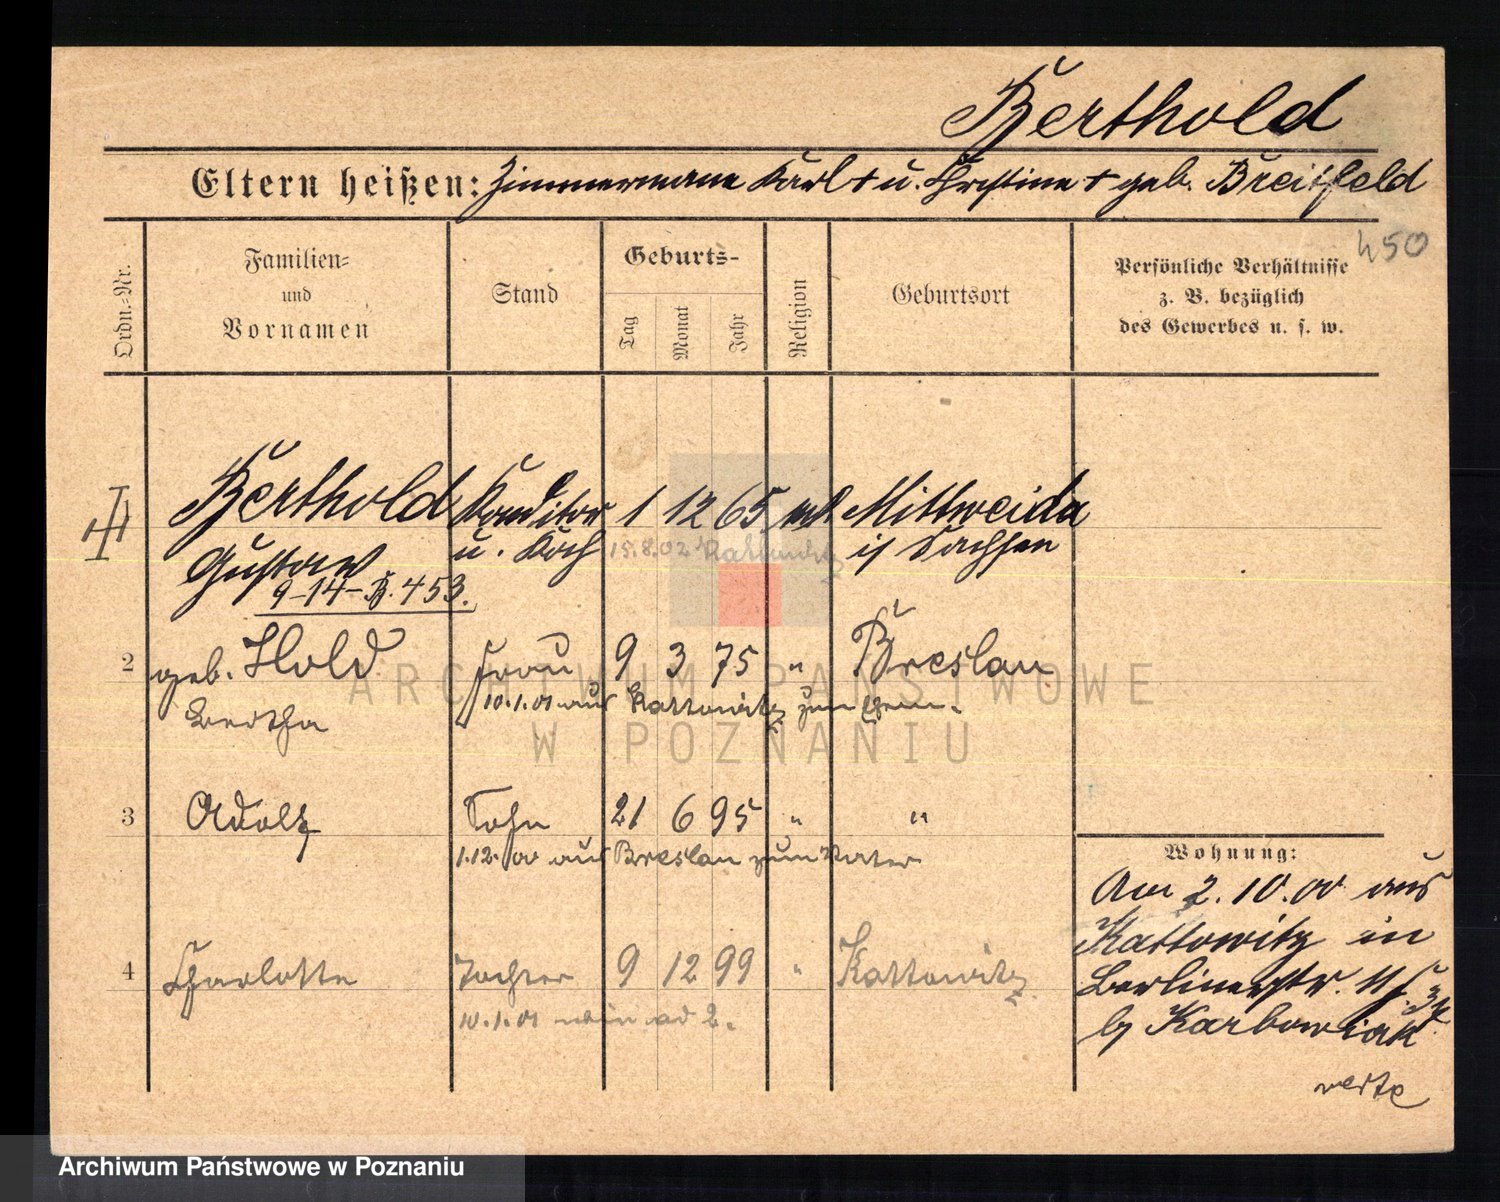 Berthold
Eltern heißen: Zimmermann Karl † u. Christine † geb. Breitfeld
450
Ordn.-Nr.
Familien-
und
Vornamen
Stand
Geburts-
Tag
Monat
Jahr
Religion
Geburtsort
Persönliche Verhältnisse
z. B. bezüglich
des Gewerbes u. s. w.
Berthold Konditor 1 12 65 Mittweida
Gustav u. Koch 15.8.02 Kattowitz i/ Sachsen
9-14-B.453.
2 geb. Hold Frau 9 3 75 " Breslau
Bertha 10.1.01 aus Kattowitz zum Ehem.
3 Adolf Sohn 21 6 95 " "
1.12.00 aus Breslau zum Vater
4 Charlotte Tochter 9 12 99 " Kattowitz
10.1.01 wie ad 2.
Wohnung:
Am 2.10.00 aus
Kattowitz in
Berlinerstr. 11
b/ Karbowiak
verte
ARCHIWUM PAŃSTWOWE
W POZNANIU
Archiwum Państwowe w Poznaniu